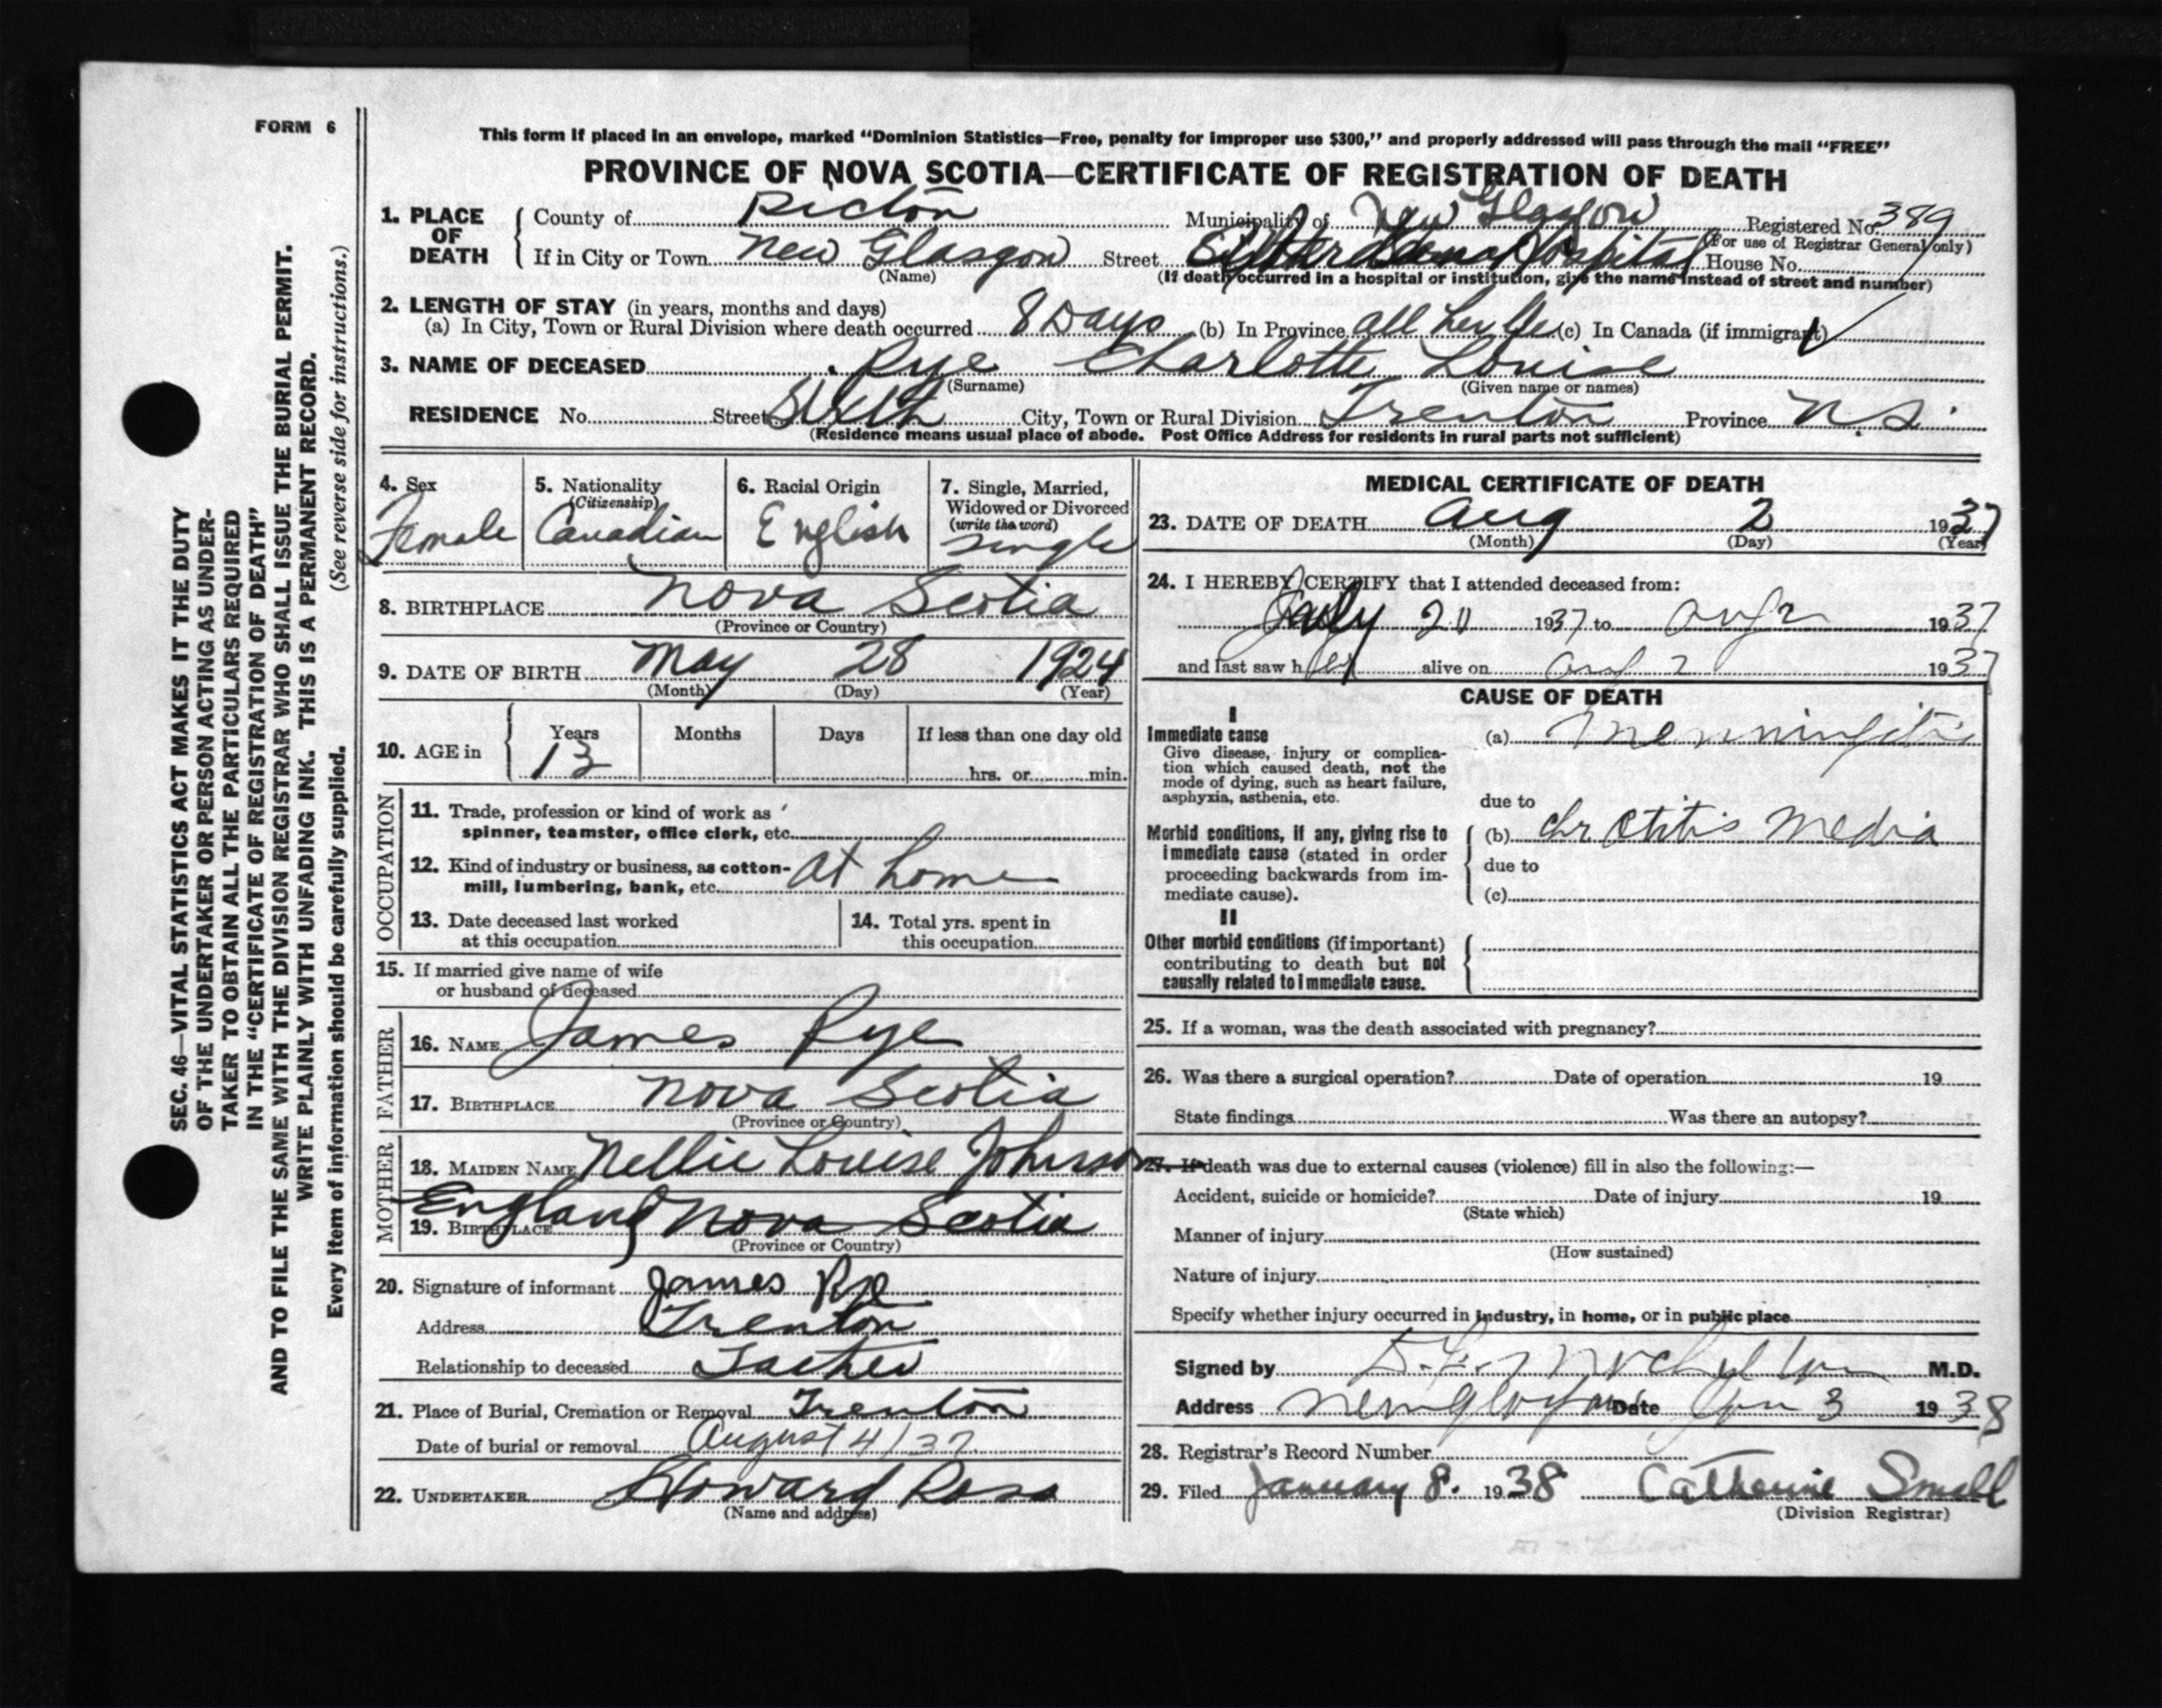 FORM 6
This form if placed in an envelope, marked "Dominion Statistics—Free, penalty for improper use $300," and properly addressed will pass through the mail "FREE"
PROVINCE OF NOVA SCOTIA—CERTIFICATE OF REGISTRATION OF DEATH
1. PLACE OF DEATH County of Pictou Municipality of New Glasgow Registered No. 389
(For use of Registrar General only)
If in City or Town New Glasgow Street Hospital House No.
(Name) (If death occurred in a hospital or institution, give the name instead of street and number)
2. LENGTH OF STAY (in years, months and days)
(a) In City, Town or Rural Division where death occurred 8 Days (b) In Province all her life (c) In Canada (if immigrant)
3. NAME OF DECEASED Rye Charlotte Louise
(Surname) (Given name or names)
RESIDENCE No. Street Sixth City, Town or Rural Division Trenton Province N.S.
(Residence means usual place of abode. Post Office Address for residents in rural parts not sufficient)
4. Sex Female
5. Nationality (Citizenship) Canadian
6. Racial Origin English
7. Single, Married, Widowed or Divorced (write the word) Single
8. BIRTHPLACE Nova Scotia
(Province or Country)
9. DATE OF BIRTH May 28 1924
(Month) (Day) (Year)
10. AGE in Years 13 Months Days If less than one day old
hrs. or min.
OCCUPATION
11. Trade, profession or kind of work as spinner, teamster, office clerk, etc.
12. Kind of industry or business, as cotton-
mill, lumbering, bank, etc. at home
13. Date deceased last worked at this occupation
14. Total yrs. spent in this occupation
15. If married give name of wife
or husband of deceased
FATHER
16. NAME James Rye
17. BIRTHPLACE Nova Scotia
(Province or Country)
MOTHER
18. MAIDEN NAME Nellie Louise Johnson
19. BIRTHPLACE England Nova Scotia
(Province or Country)
20. Signature of informant James Rye
Address Trenton
Relationship to deceased Father
21. Place of Burial, Cremation or Removal Trenton
Date of burial or removal August 4/37
22. UNDERTAKER Howard Ross
(Name and address)
MEDICAL CERTIFICATE OF DEATH
23. DATE OF DEATH Aug 2 1937
(Month) (Day) (Year)
24. I HEREBY CERTIFY that I attended deceased from:
July 1937 to Aug 2 1937
and last saw her alive on Aug 2 1937
CAUSE OF DEATH
I
Immediate cause (a) Menningitis
Give disease, injury or complica-
tion which caused death, not the
mode of dying, such as heart failure,
asphyxia, asthenia, etc.
due to
Morbid conditions, if any, giving rise to
immediate cause (stated in order
proceeding backwards from im-
mediate cause).
(b) chr Otitis Media
due to
(c)
II
Other morbid conditions (if important)
contributing to death but not
causally related to immediate cause.
25. If a woman, was the death associated with pregnancy?
26. Was there a surgical operation? Date of operation 19
State findings Was there an autopsy?
27. If death was due to external causes (violence) fill in also the following:—
Accident, suicide or homicide? Date of injury 19
(State which)
Manner of injury
(How sustained)
Nature of injury
Specify whether injury occurred in industry, in home, or in public place
Signed by M.D.
Address New Glasgow Date Jan 3 1938
28. Registrar's Record Number
29. Filed January 8. 1938 Catherine Small
(Division Registrar)
SEC. 46—VITAL STATISTICS ACT MAKES IT THE DUTY
OF THE UNDERTAKER OR PERSON ACTING AS UNDER-
TAKER TO OBTAIN ALL THE PARTICULARS REQUIRED
IN THE "CERTIFICATE OF REGISTRATION OF DEATH"
AND TO FILE THE SAME WITH THE DIVISION REGISTRAR WHO SHALL ISSUE THE BURIAL PERMIT.
WRITE PLAINLY WITH UNFADING INK. THIS IS A PERMANENT RECORD.
Every item of information should be carefully supplied. (See reverse side for instructions.)